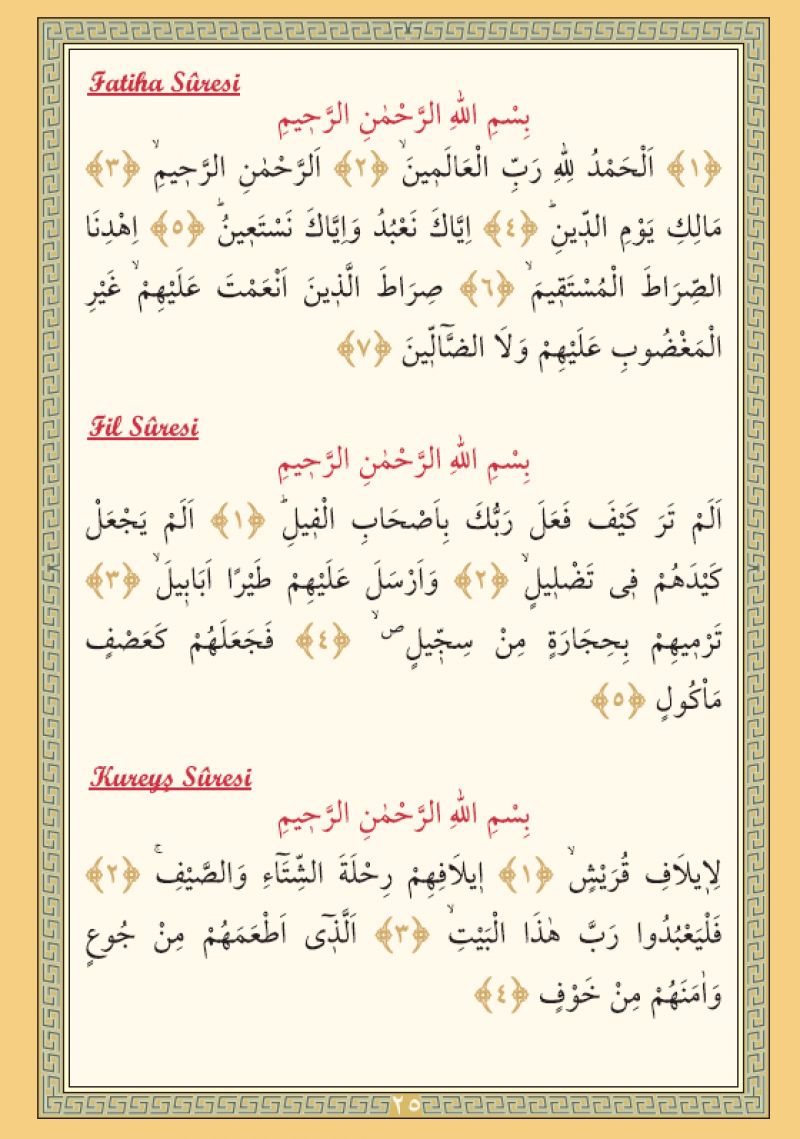 Fatiha Sûresi
بِسْمِ اللّٰهِ الرَّحْمٰنِ الرَّحٖيمِ
﴿١﴾ اَلْحَمْدُ لِلّٰهِ رَبِّ الْعَالَمٖينَۙ ﴿٢﴾ اَلرَّحْمٰنِ الرَّحٖيمِۙ ﴿٣﴾
مَالِكِ يَوْمِ الدّٖينِؕ ﴿٤﴾ اِيَّاكَ نَعْبُدُ وَاِيَّاكَ نَسْتَعٖينُؕ ﴿٥﴾ اِهْدِنَا
الصِّرَاطَ الْمُسْتَقٖيمَۙ ﴿٦﴾ صِرَاطَ الَّذٖينَ اَنْعَمْتَ عَلَيْهِمْۙ غَيْرِ
الْمَغْضُوبِ عَلَيْهِمْ وَلَا الضَّٓالّٖينَ ﴿٧﴾
Fil Sûresi
بِسْمِ اللّٰهِ الرَّحْمٰنِ الرَّحٖيمِ
اَلَمْ تَرَ كَيْفَ فَعَلَ رَبُّكَ بِاَصْحَابِ الْفٖيلِؕ ﴿١﴾ اَلَمْ يَجْعَلْ
كَيْدَهُمْ فٖى تَضْلٖيلٍۙ ﴿٢﴾ وَاَرْسَلَ عَلَيْهِمْ طَيْرًا اَبَابٖيلَۙ ﴿٣﴾
تَرْمٖيهِمْ بِحِجَارَةٍ مِنْ سِجّٖيلٍۙص ﴿٤﴾ فَجَعَلَهُمْ كَعَصْفٍ
مَاْكُولٍ ﴿٥﴾
Kureyş Sûresi
بِسْمِ اللّٰهِ الرَّحْمٰنِ الرَّحٖيمِ
لِاٖيلَافِ قُرَيْشٍۙ ﴿١﴾ اٖيلَافِهِمْ رِحْلَةَ الشِّتَٓاءِ وَالصَّيْفِۚ ﴿٢﴾
فَلْيَعْبُدُوا رَبَّ هٰذَا الْبَيْتِۙ ﴿٣﴾ اَلَّذٖٓى اَطْعَمَهُمْ مِنْ جُوعٍ
وَاٰمَنَهُمْ مِنْ خَوْفٍ ﴿٤﴾
٢٥